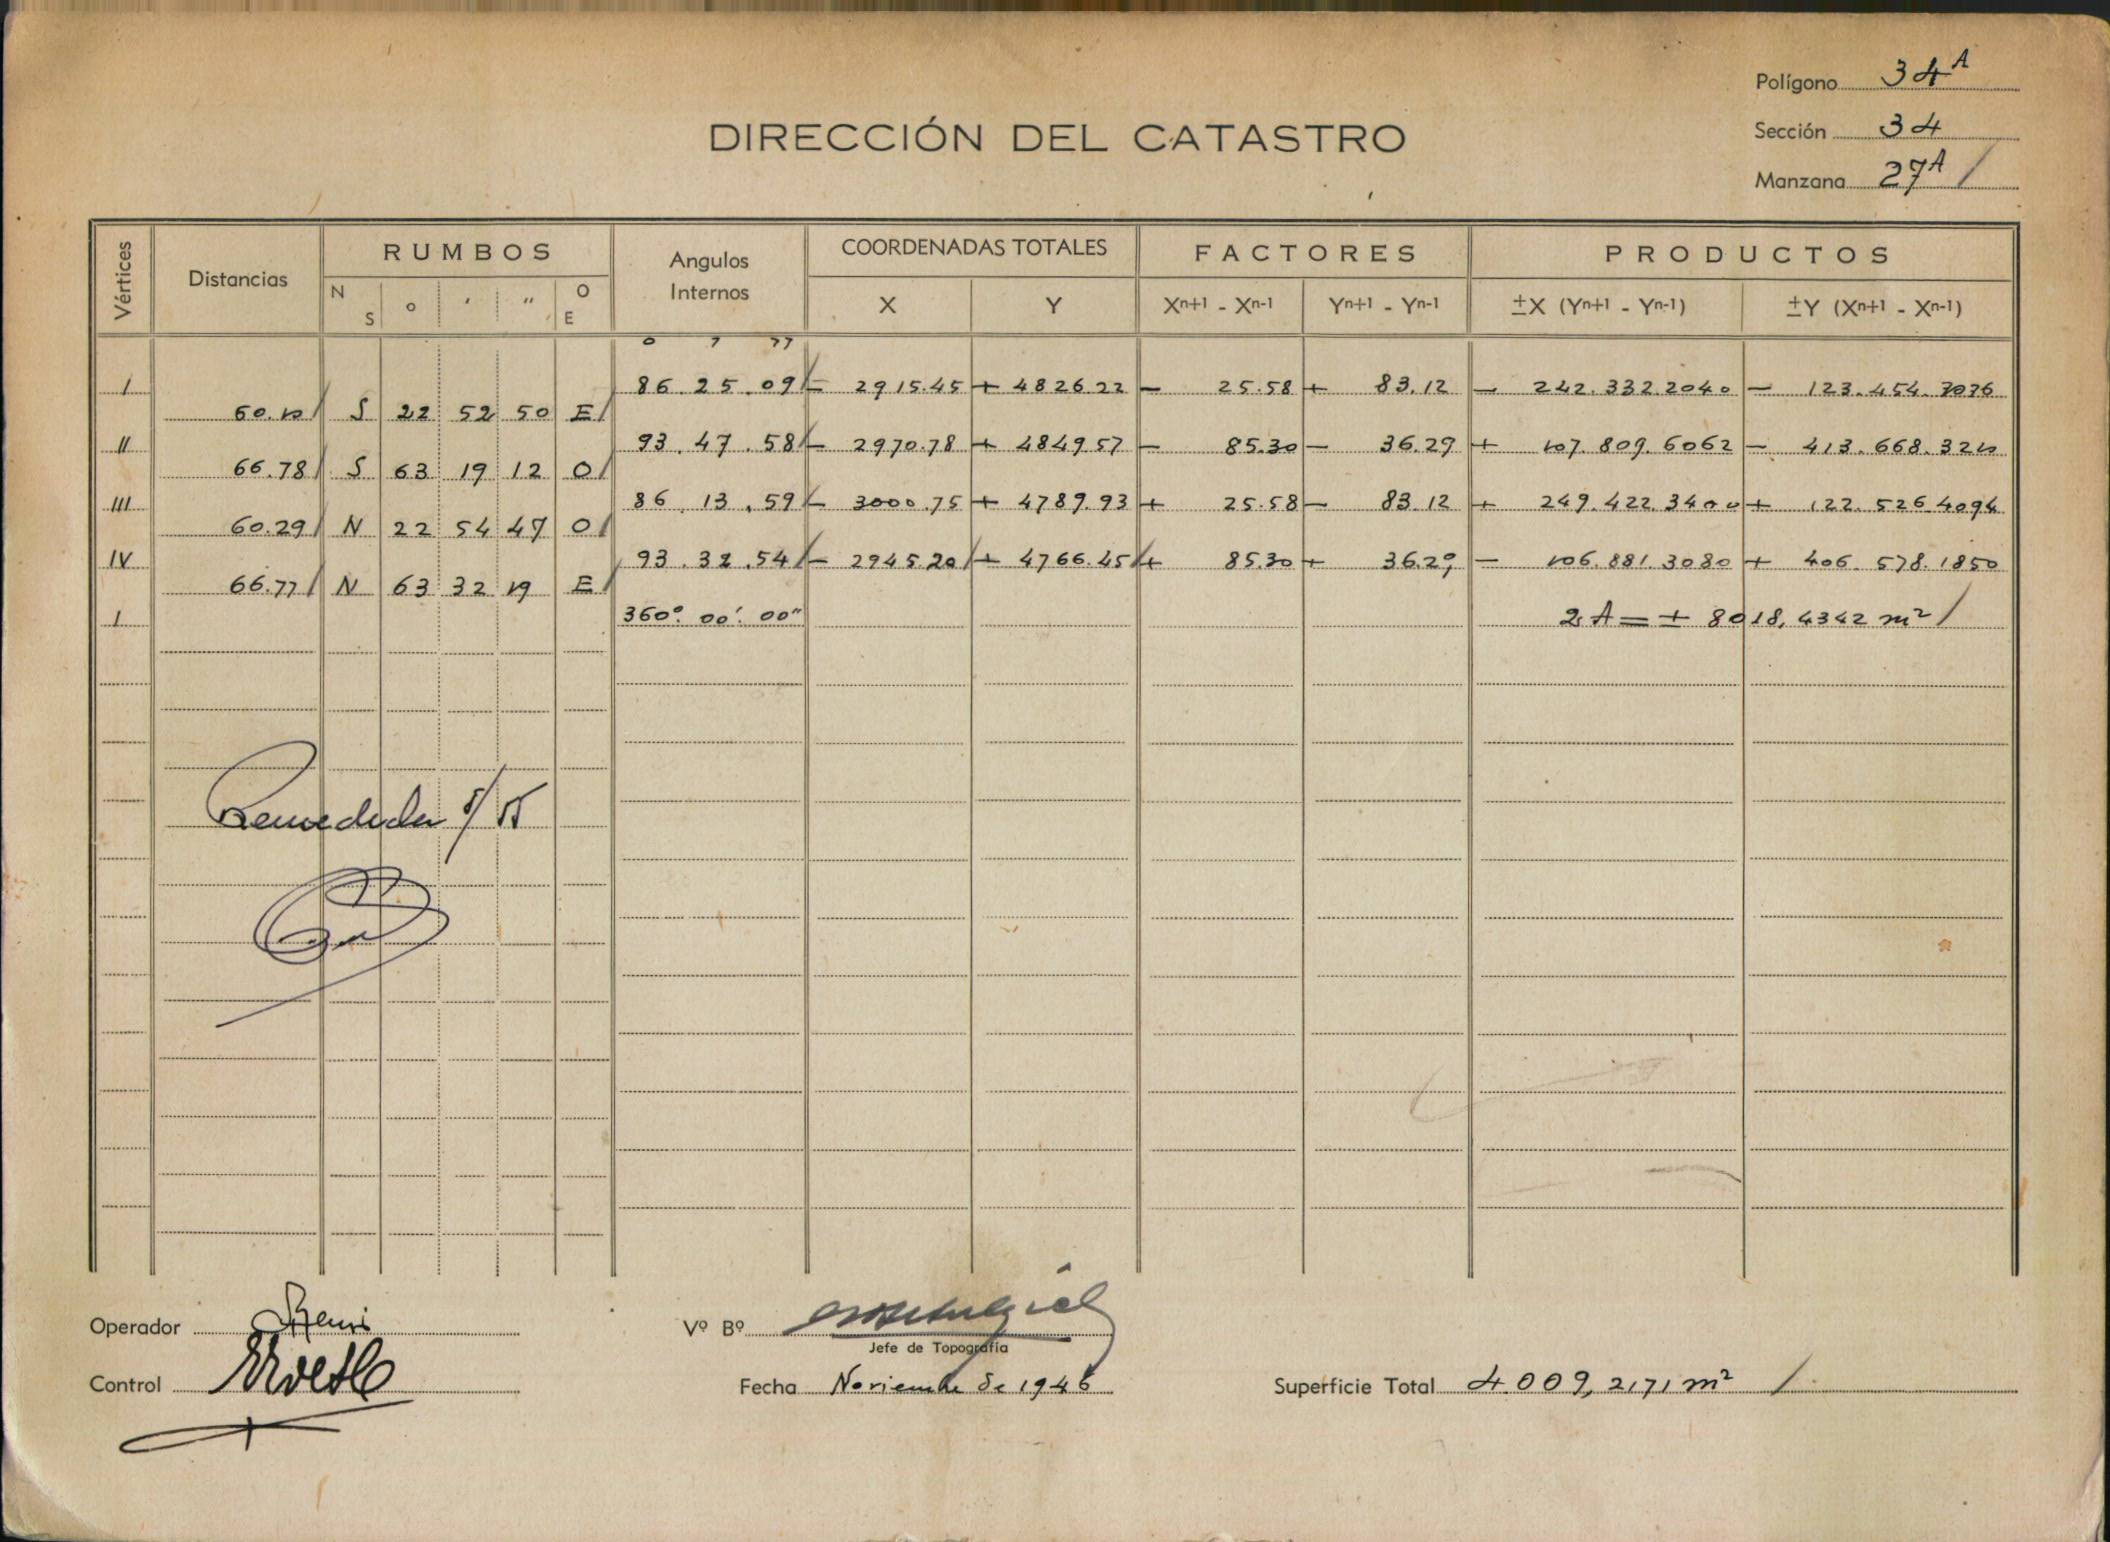 Polígono 34A
DIRECCIÓN DEL CATASTRO
Sección 34
Manzana 27A /
Vértices Distancias RUMBOS Angulos Internos COORDENADAS TOTALES FACTORES PRODUCTOS
N S o ' " O E X Y Xn+1 - Xn-1 Yn+1 - Yn-1 ±X (Yn+1 - Yn-1) ±Y (Xn+1 - Xn-1)
o ' "
I 86.25.09 / - 2915.45 + 4826.22 - 25.58 + 83.12 - 242.332.2040 - 123.454.7076
60.10 / S 22 52 50 E /
II 93.47.58 / - 2970.78 + 4849.57 - 85.30 - 36.29 + 107.809.6062 - 413.668.3210
66.78 / S 63 19 12 O /
III 86.13.59 / - 3000.75 + 4789.93 + 25.58 - 83.12 + 249.422.3400 + 122.526.4094
60.29 / N 22 54 47 O /
IV 93.32.54 / - 2945.20 / + 4766.45 / + 85.30 + 36.29 - 106.881.3080 + 406.578.1850
66.77 / N 63 32 19 E /
I 360°.00'.00" 2A = ± 8018,4342 m² /
Remedida
Operador
Vº Bº
Jefe de Topografía
Control
Fecha Noviembre de 1946
Superficie Total 4.009,2171 m² /